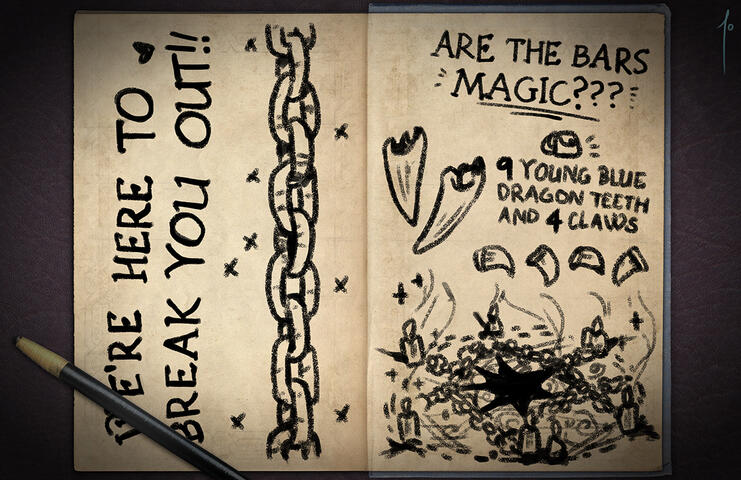 WE'RE HERE TO
BREAK YOU OUT!!
ARE THE BARS
MAGIC???
9 YOUNG BLUE
DRAGON TEETH
AND 4 CLAWS